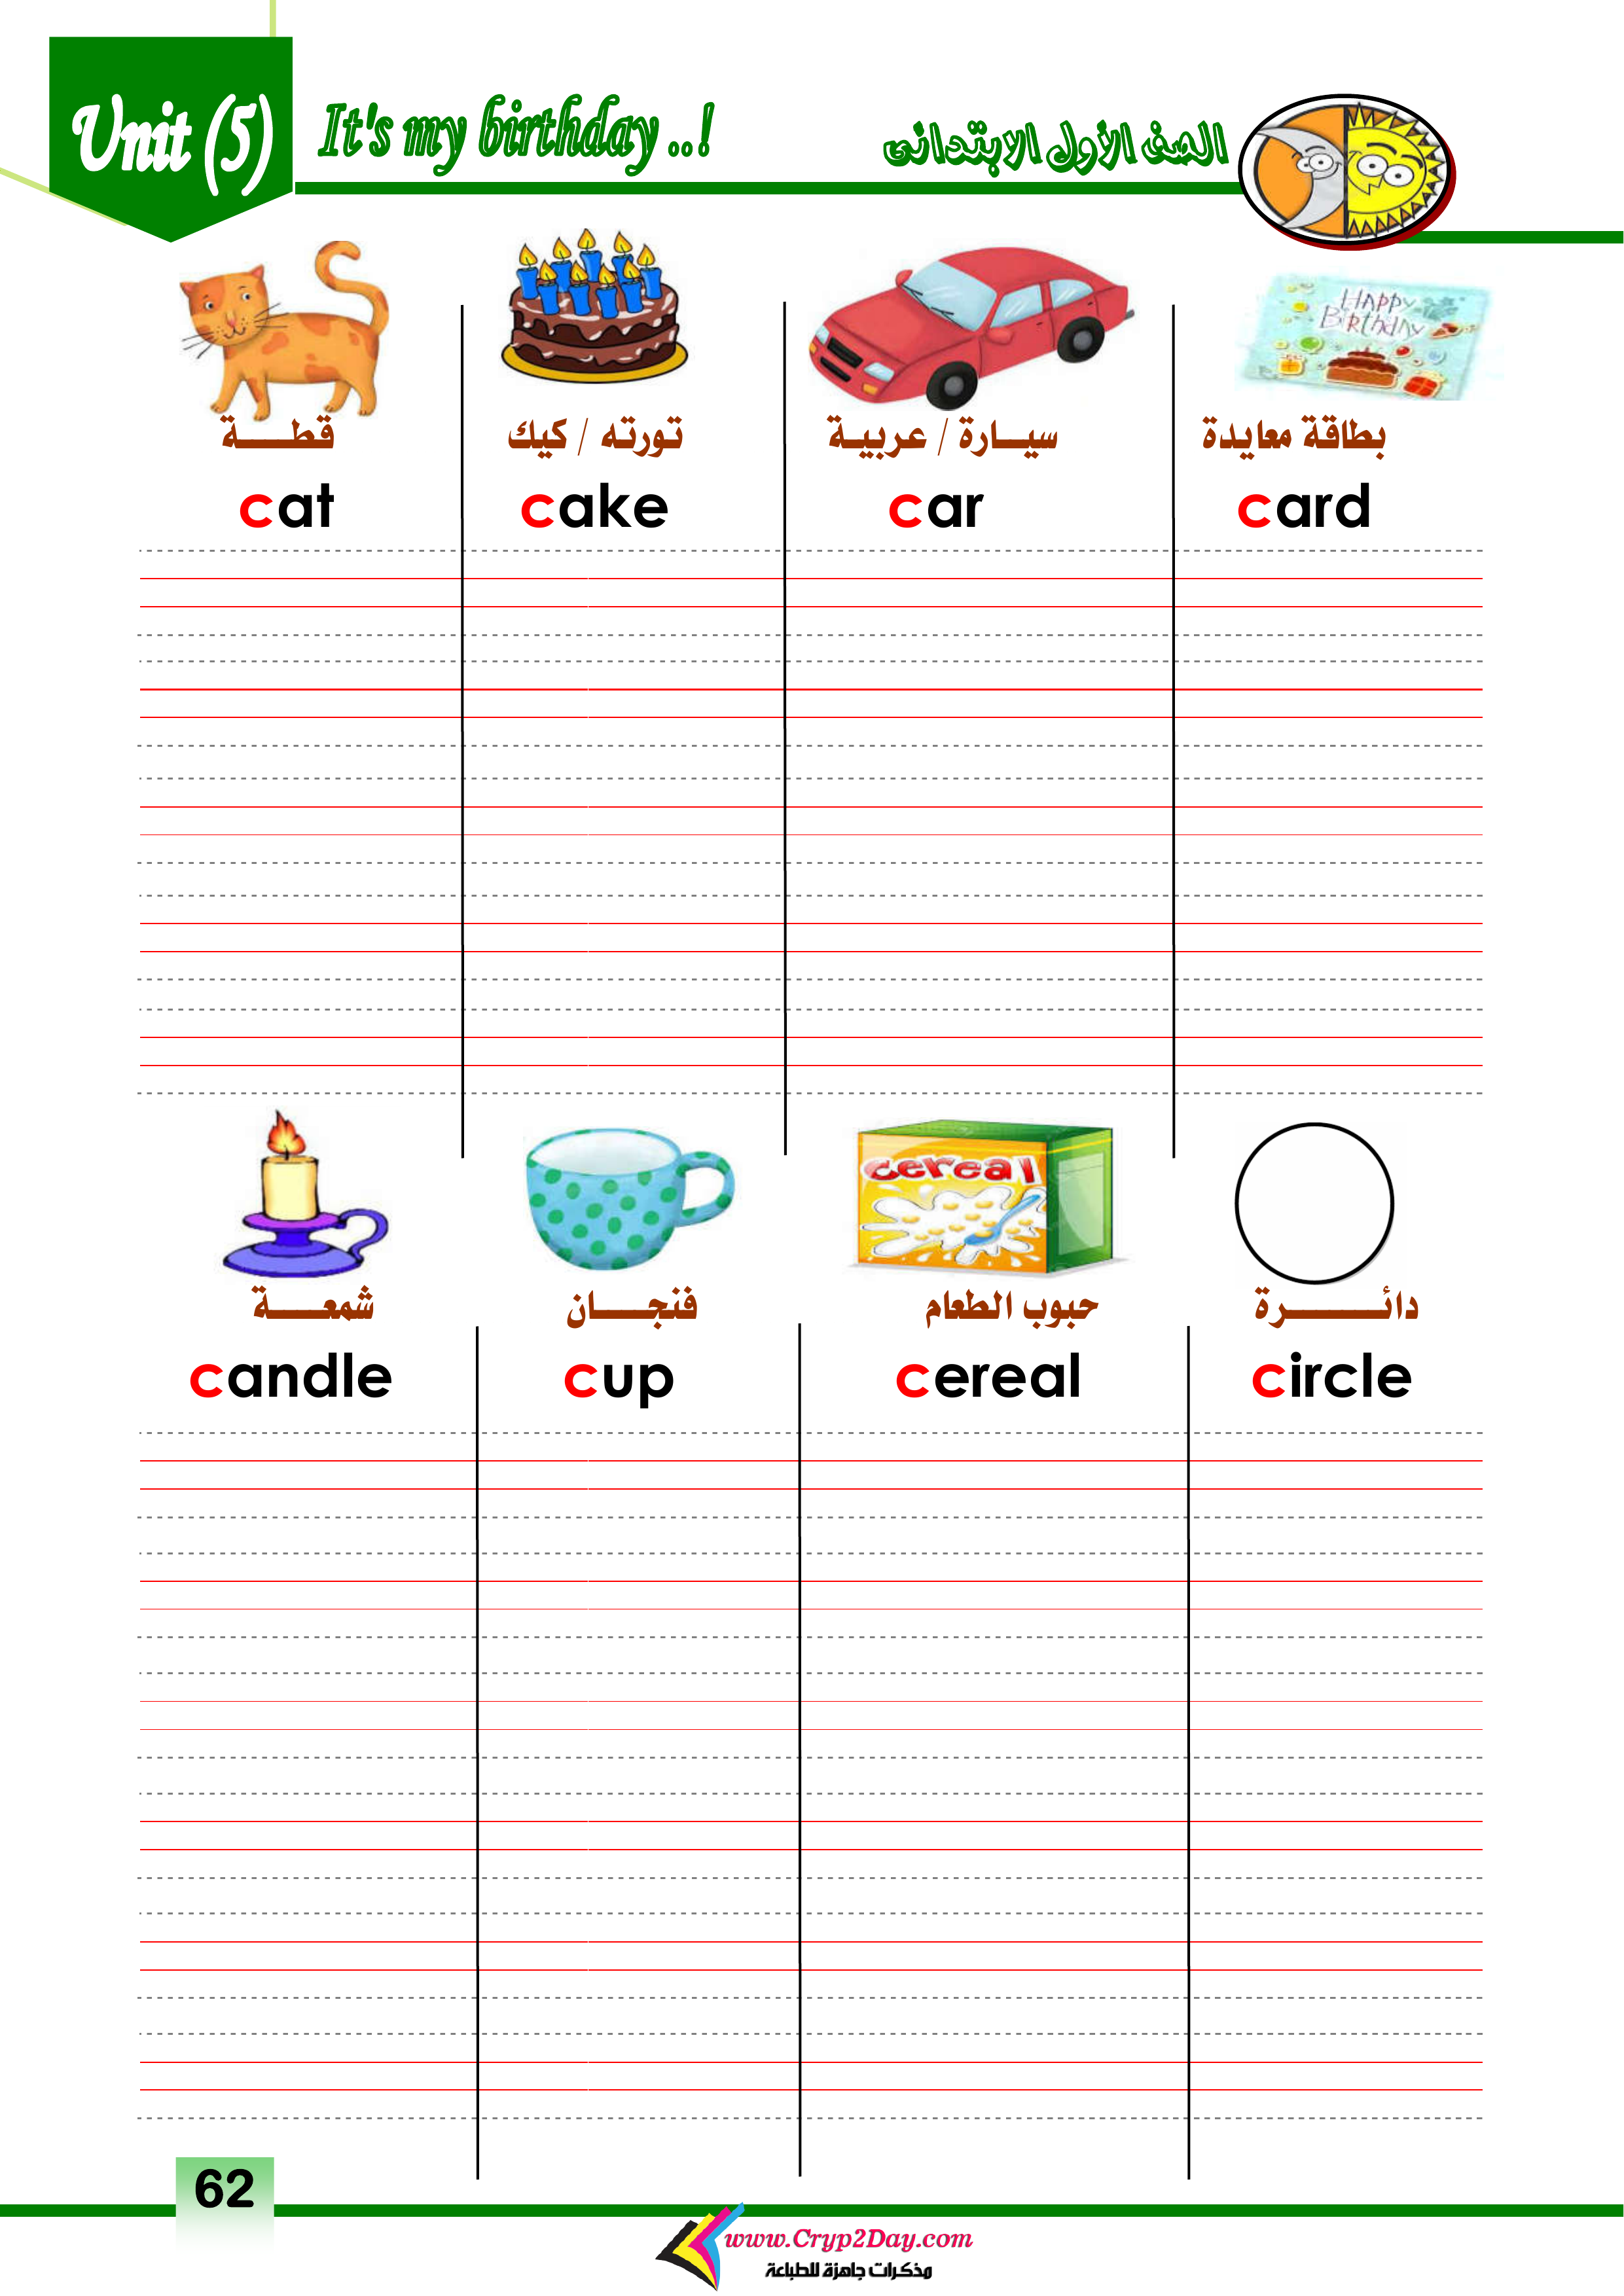 Unit (5) It's my birthday ..! الصف الأول الابتدائى
HAPPY
BIRTHDAY
قطـــــة تورته / كيك سيـــارة / عربيـة بطاقة معايدة
cat cake car card
cereal
شمعـــــة فنجـــــان حبوب الطعام دائـــــــــرة
candle cup cereal circle
62
www.Cryp2Day.com
مذكرات جاهزة للطباعة